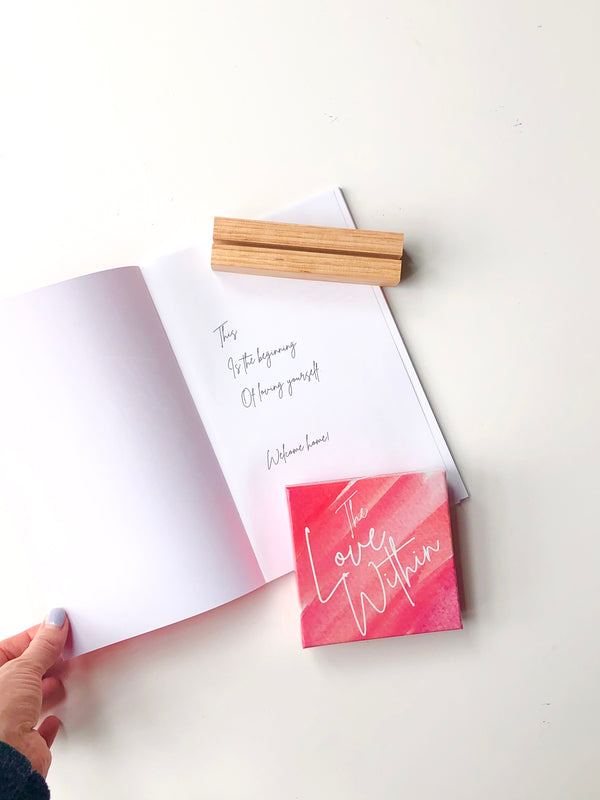 This
Is the beginning
Of loving yourself
Welcome home!
The
Love
Within